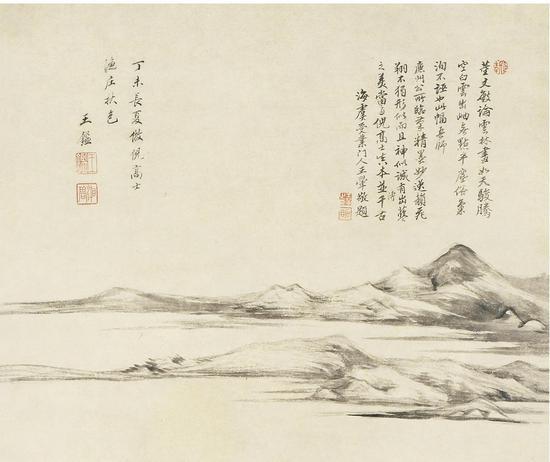 董文敏論雲林畫如天駿騰
空白雲出岫無點半塵俗氣
洵不誣也此幅吾師
廉州公所臨筆精墨妙逸韻飛
翔不獨形似而且神似誠有出藍
之美當与倪高士真本並千古
傳
海虞受業門人王翬敬題
丁未長夏倣倪高士
漁庄秋色
王鑑